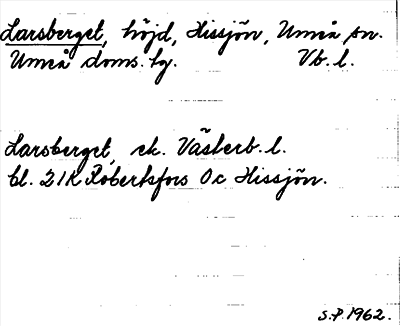 Larsberget, höjd, Hissjön, Umeå sn.
Umeå doms. tg. Vb. l.
Larsberget, ek. Västerb. l.
bl. 21K Robertsfors 0c Hissjön.
S.P. 1962.